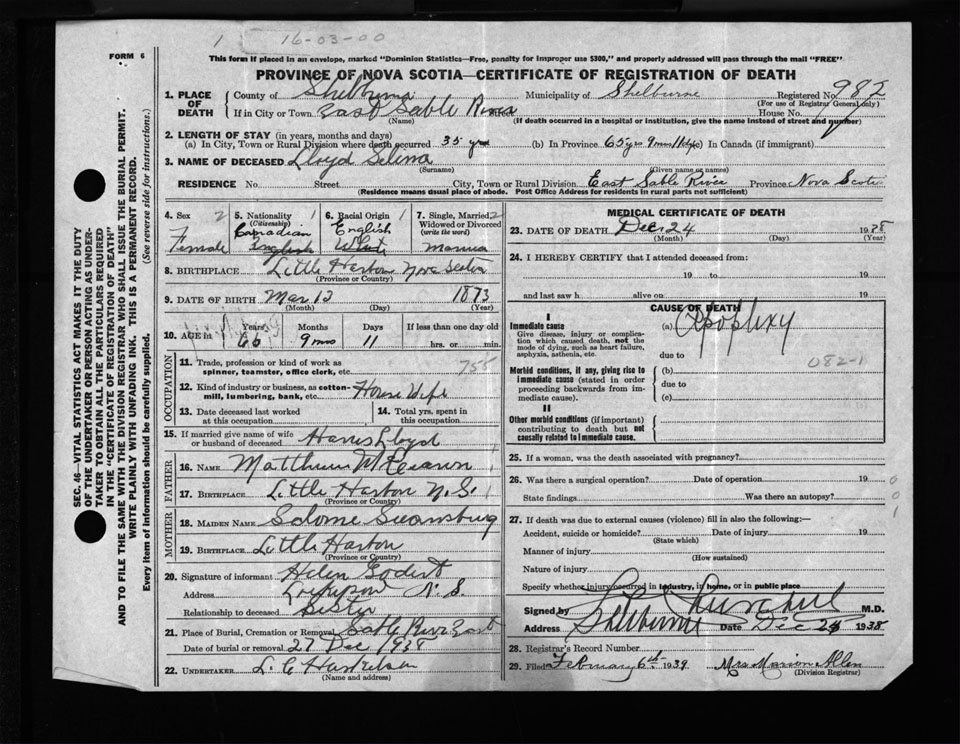 1 16-03-00
FORM 6
This form if placed in an envelope, marked "Dominion Statistics—Free, penalty for improper use $300," and properly addressed will pass through the mail "FREE"
PROVINCE OF NOVA SCOTIA—CERTIFICATE OF REGISTRATION OF DEATH
1. PLACE OF DEATH County of Shelburne Municipality of Shelburne Registered No. 982
(For use of Registrar General only)
If in City or Town East Sable River House No.
(Name) (If death occurred in a hospital or institution, give the name instead of street and number)
2. LENGTH OF STAY (in years, months and days)
(a) In City, Town or Rural Division where death occurred 35 yrs (b) In Province 65 yrs 9 mos 11 dys (c) In Canada (if immigrant)
3. NAME OF DECEASED Lloyd Selema
(Surname) (Given name or names)
RESIDENCE No. Street City, Town or Rural Division East Sable River Province Nova Scotia
(Residence means usual place of abode. Post Office Address for residents in rural parts not sufficient)
4. Sex 2 5. Nationality 1 6. Racial Origin 1 7. Single, Married 2
(Citizenship) Widowed or Divorced
(write the word)
Female Canadian English English White Married
8. BIRTHPLACE Little Harbor Nova Scotia
(Province or Country)
9. DATE OF BIRTH Mar 13 1873
(Month) (Day) (Year)
10. AGE in Years Months Days If less than one day old
9 mos 11 hrs. or min.
OCCUPATION
11. Trade, profession or kind of work as spinner, teamster, office clerk, etc. 755
12. Kind of industry or business, as cotton-mill, lumbering, bank, etc. House Wife
13. Date deceased last worked at this occupation 14. Total yrs. spent in this occupation
15. If married give name of wife or husband of deceased Harris Lloyd
FATHER
16. NAME Matthew
17. BIRTHPLACE Little Harbor N.S. 1
(Province or Country)
MOTHER
18. MAIDEN NAME Salome Swansburg
19. BIRTHPLACE Little Harbor
(Province or Country)
20. Signature of informant Helen
Address Lockeport N. S.
Relationship to deceased Sister
21. Place of Burial, Cremation or Removal Sable River East
Date of burial or removal 27 Dec 1938
22. UNDERTAKER L. C
(Name and address)
MEDICAL CERTIFICATE OF DEATH
23. DATE OF DEATH Dec 24 1938
(Month) (Day) (Year)
24. I HEREBY CERTIFY that I attended deceased from:
19 to 19
and last saw h alive on 19
CAUSE OF DEATH
I
Immediate cause (a) Apoplexy
Give disease, injury or complication which caused death, not the mode of dying, such as heart failure, asphyxia, asthenia, etc.
due to 082-1
Morbid conditions, if any, giving rise to immediate cause (stated in order proceeding backwards from immediate cause). (b)
due to
(c)
II
Other morbid conditions (if important) contributing to death but not causally related to immediate cause.
25. If a woman, was the death associated with pregnancy?
26. Was there a surgical operation? Date of operation 19 0
State findings Was there an autopsy? 0
1
27. If death was due to external causes (violence) fill in also the following:—
Accident, suicide or homicide? Date of injury 19
(State which)
Manner of injury
(How sustained)
Nature of injury
Specify whether injury occurred in industry, in home, or in public place
Signed by Churchill M.D.
Address Shelburne Date Dec 1938
28. Registrar's Record Number
29. Filed February 6th 1939 Mrs Marion Allen
(Division Registrar)
SEC. 46—VITAL STATISTICS ACT MAKES IT THE DUTY
OF THE UNDERTAKER OR PERSON ACTING AS UNDER-
TAKER TO OBTAIN ALL THE PARTICULARS REQUIRED
IN THE "CERTIFICATE OF REGISTRATION OF DEATH"
AND TO FILE THE SAME WITH THE DIVISION REGISTRAR WHO SHALL ISSUE THE BURIAL PERMIT.
WRITE PLAINLY WITH UNFADING INK. THIS IS A PERMANENT RECORD.
Every item of information should be carefully supplied. (See reverse side for instructions.)